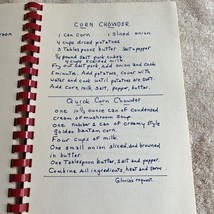 CORN CHOWDER
1 can corn 1 sliced onion
4 cups diced potatoes
2 Tablespoons butter salt + pepper
¼ pound salt pork cubed
4 cups scalded milk.
Fry out salt pork, add onion and cook
5 minutes. Add potatoes, cover with
water and cook until potatoes are soft.
Add corn, milk, salt, pepper, butter.
Quick Corn Chowder
One 10½ ounce can of condensed
cream of mushroom soup.
One number 2 can of creamy style
golden bantam corn.
Four cups of milk.
One small onion sliced and browned
in butter.
One Tablespoon butter, salt and pepper.
Combine all ingredients, heat and serve.
Gloria's request.